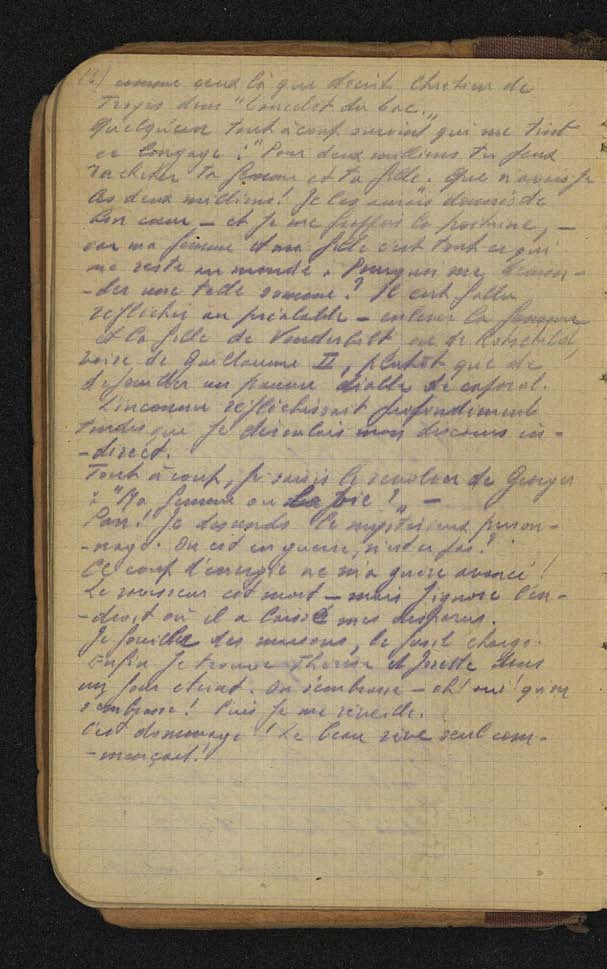 comme ceux là que décrit Chrétien de
Troyes dans "Lancelot du Lac."
Quelqu'un tout à coup survint qui me tint
ce langage : "Pour deux millions tu peux
racheter ta femme et ta fille. Que n'avais-je
les deux millions! Je les aurais donnés de
bon cœur — et je me frappais la poitrine, —
car ma femme et ma fille c'est tout ce qui
me reste au monde. Pourquoi me deman-
-der une telle somme? Il eut fallu
réfléchir au préalable — enlever la femme
et la fille de Vanderbilt ou de Rotschild,
voire de Guillaume II, plutôt que de
dépouiller un pauvre diable de caporal.
L'inconnu réfléchissait profondément
tandis que je déroulais mon discours in-
-direct.
Tout à coup, je saisis le revolver de Georges
: "Ma femme ou la vie?" —
Pan! Je descends le mystérieux person-
-nage. On est en guerre, n'est ce pas?
Ce coup d'énergie ne m'a guère avancé!
Le ravisseur est mort — mais j'ignore l'en-
-droit où il a laissé mes disparus.
Je fouille des maisons, le fusil chargé.
Enfin je trouve Thérèse et Josette dans
un four éteint. On s'embrasse — ah! oui! qu'on
s'embrasse! Puis je me réveille.
C'est dommage! Le beau rêve seul com-
-mençait!